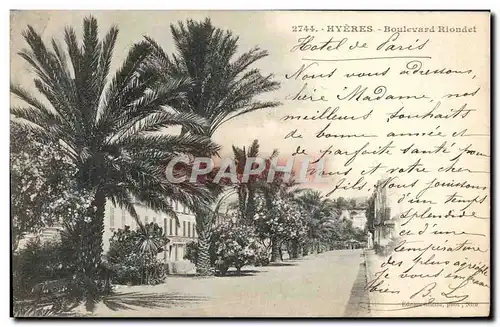 2744. - HYÈRES - Boulevard Riondet
Hotel de Paris
Nous vous adressons,
chère Madame, nos
meilleurs souhaits
de bonne année et
de parfaite santé pour
vous et votre cher
fils. Nous jouissons
d'un temps
splendide
et
d'une
température
CPARAMA